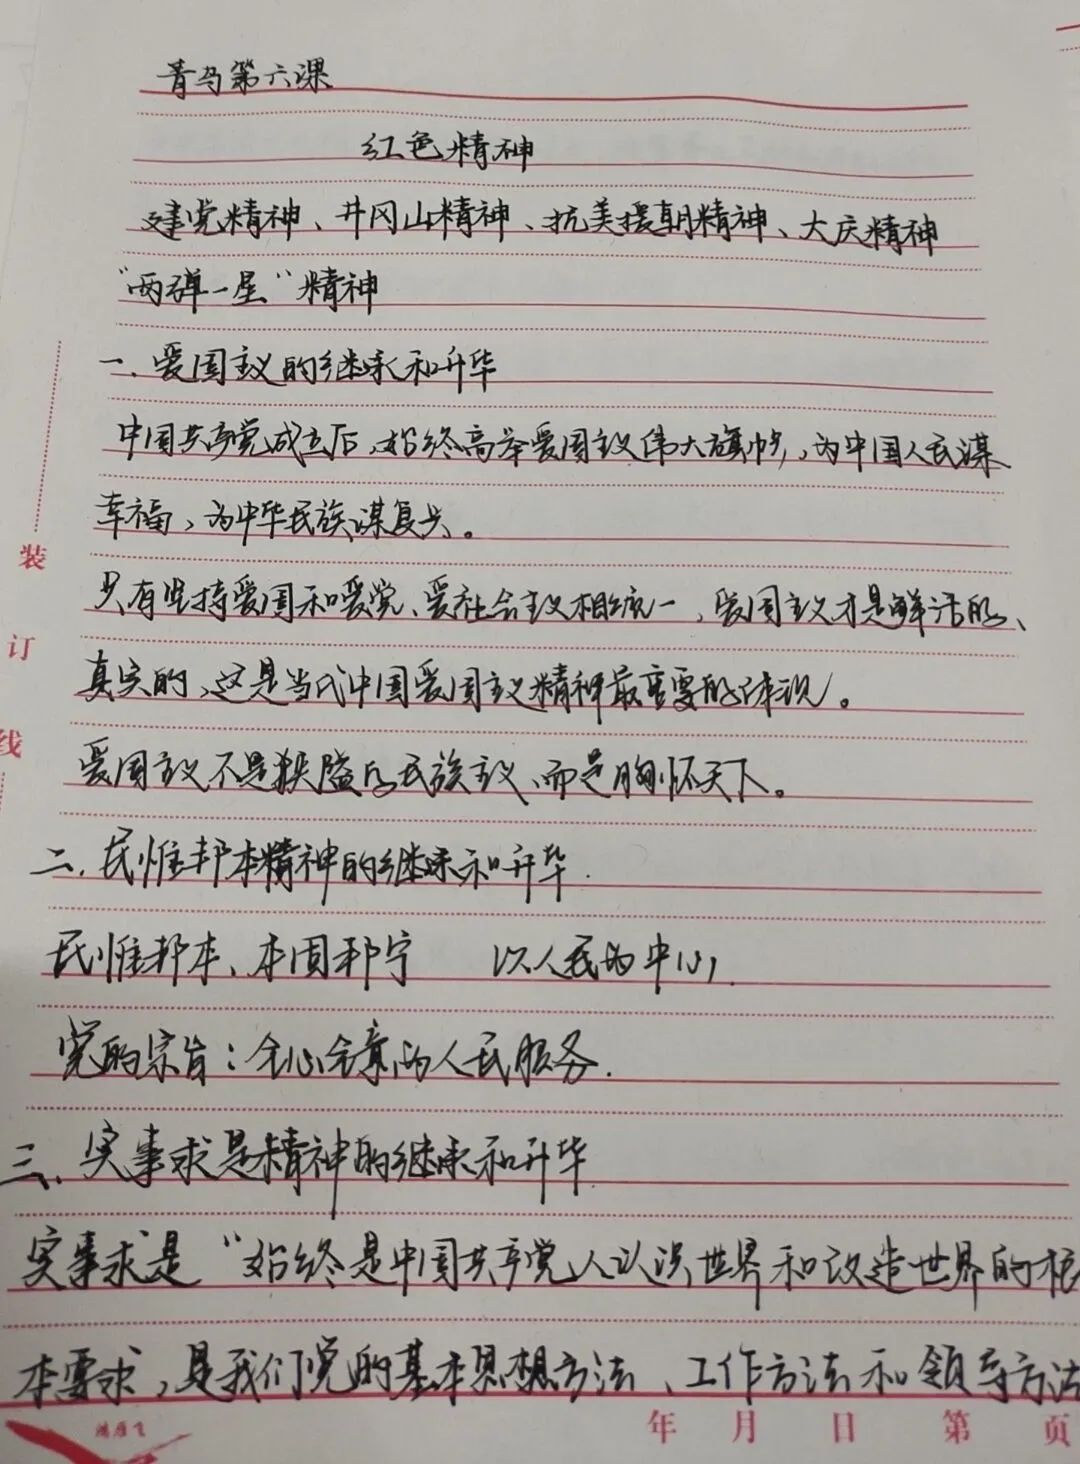 青马第六课
红色精神
建党精神、井冈山精神、抗美援朝精神、大庆精神
“两弹一星”精神
一、爱国主义的继承和升华
中国共产党成立后，始终高举爱国主义伟大旗帜，为中国人民谋
幸福，为中华民族谋复兴。
只有坚持爱国和爱党、爱社会主义相统一，爱国主义才是鲜活的、
真实的，这是当代中国爱国主义精神最重要的体现。
爱国主义不是狭隘的民族主义，而是胸怀天下。
二、民惟邦本精神的继承和升华.
民惟邦本、本固邦宁 以人民为中心.
党的宗旨：全心全意为人民服务.
三、实事求是精神的继承和升华
实事求是“始终是中国共产党人认识世界和改造世界的根
本要求，是我们党的基本思想方法、工作方法和领导方法
装
订
线
鸿雁飞
年 月 日 第 页